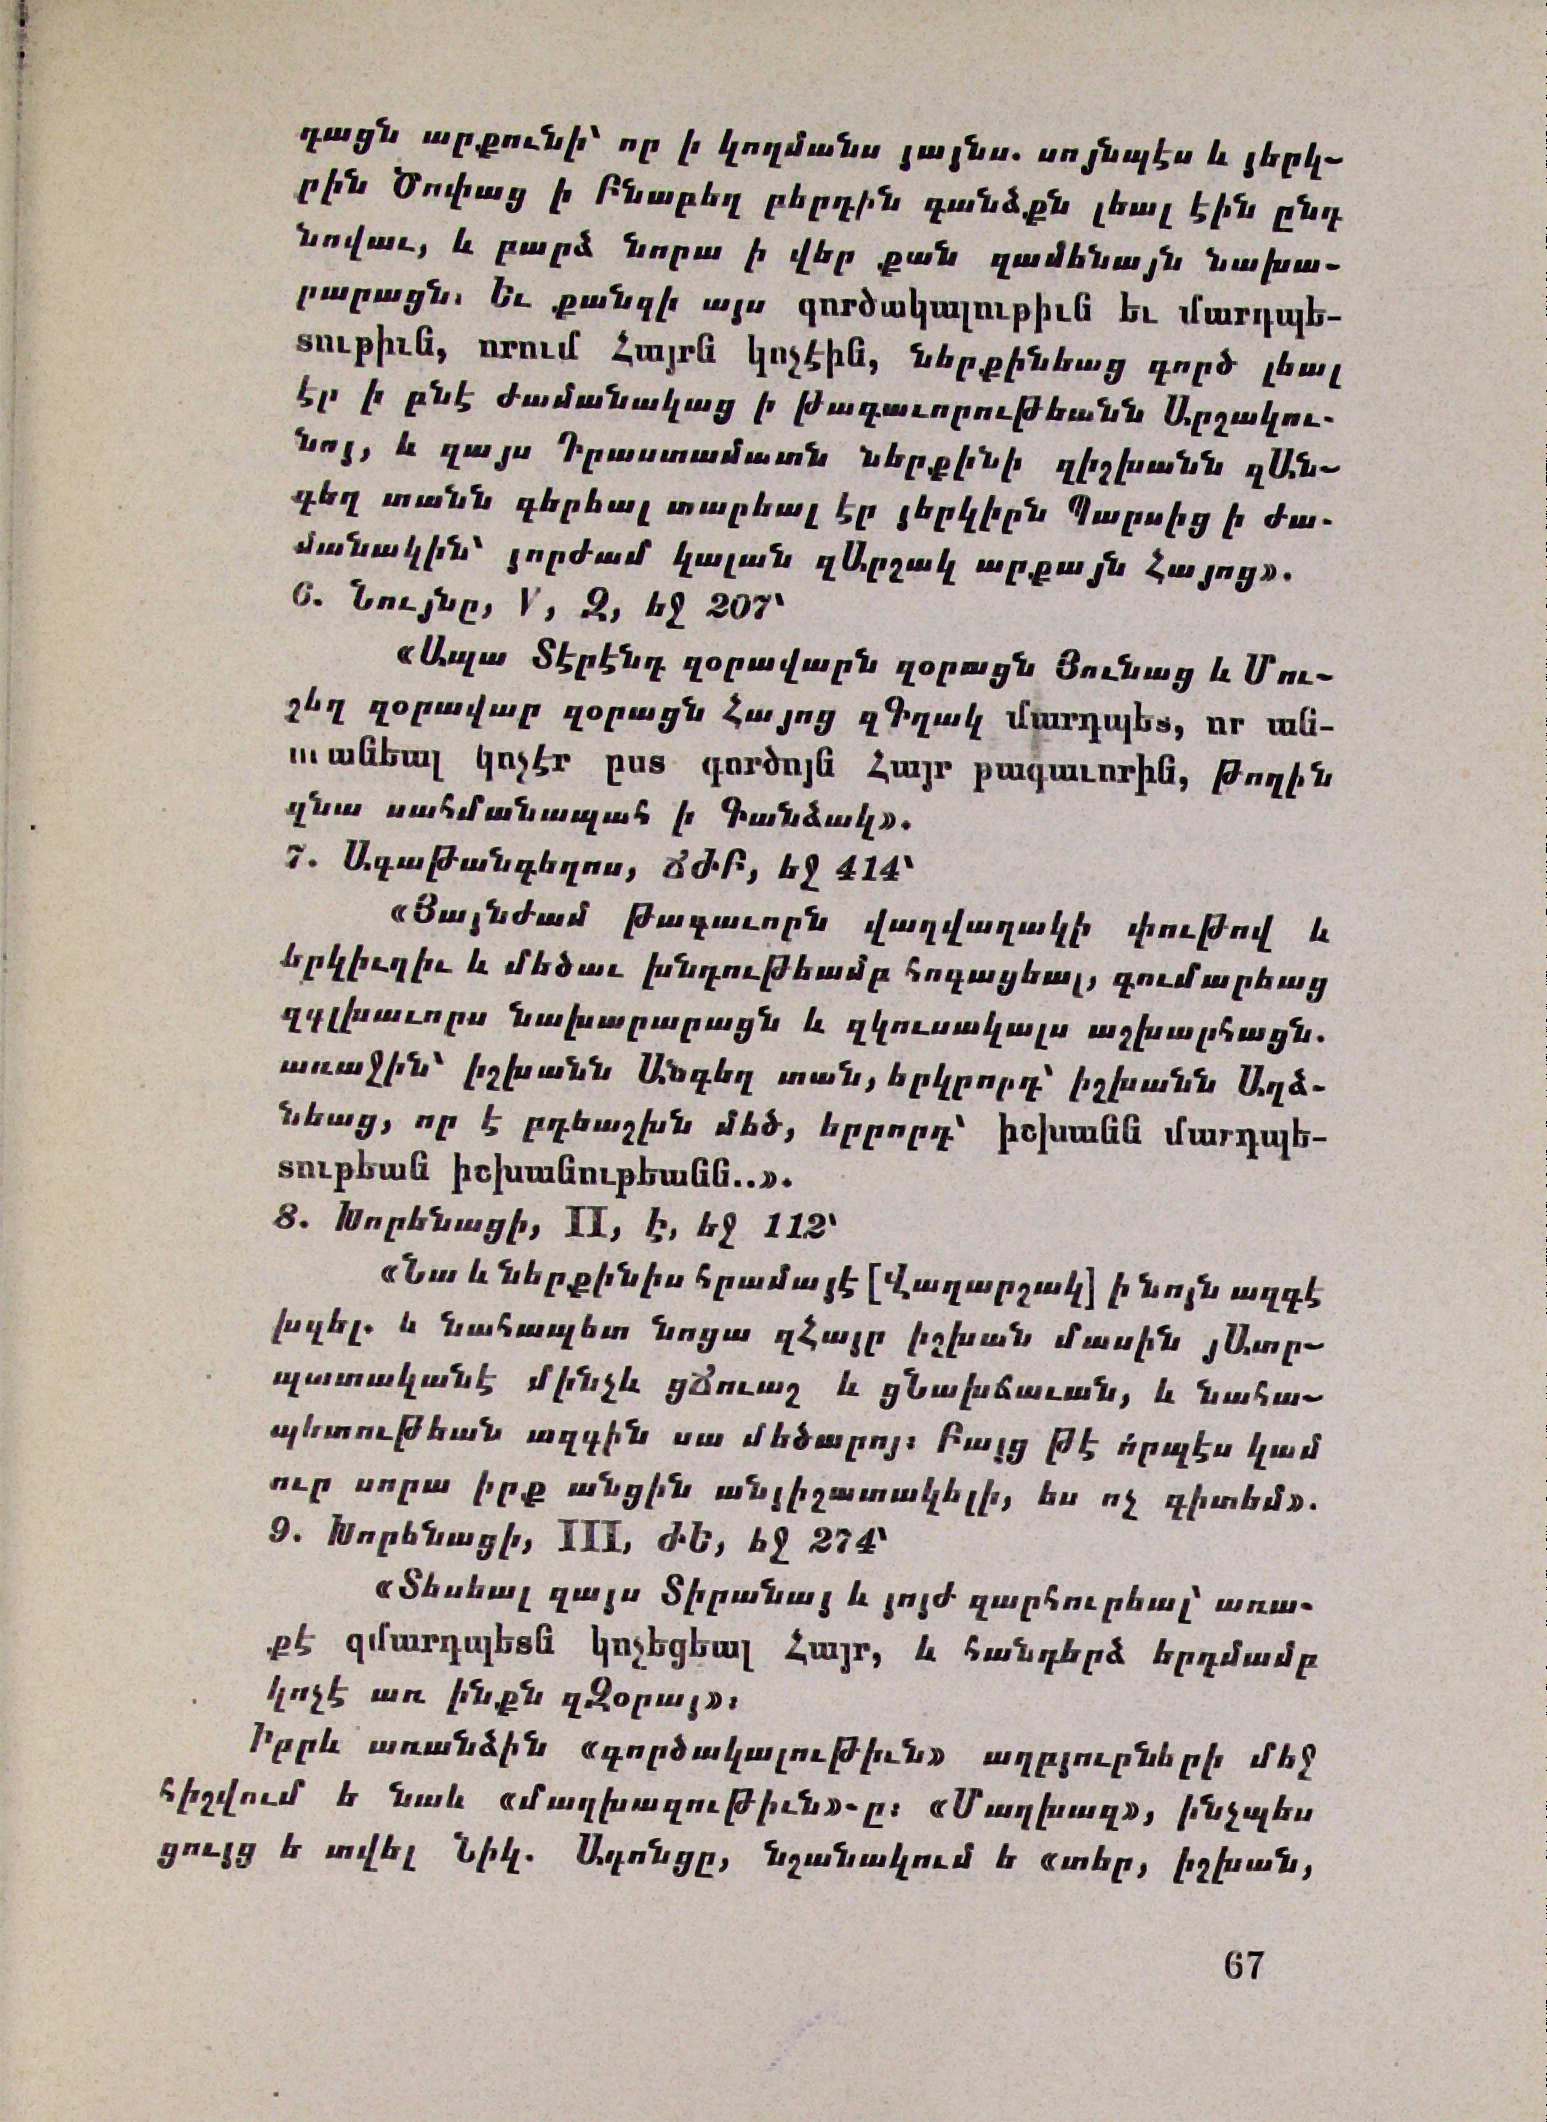 դացն արքունի՝ որ ի կողմանս յայնս. սոյնպէս և յերկ-
րին Ծոփաց ի Բնաբեղ բերդին գանձքն լեալ էին ընդ
նովաւ, և բարձ նորա ի վեր քան զամենայն նախա-
րարացն։ Եւ քանզի այս գործակալութիւն եւ մարդպե-
տութիւն, որում Հայրն կոչէին, ներքինեաց գործ լեալ
էր ի բնէ ժամանակաց ի թագաւորութեանն Արշակու-
նոյ, և զայս Դրաստամատն ներքինի զիշխանն զԱն-
գեղ տանն գերեալ տարեալ էր յերկիրն Պարսից ի ժա-
մանակին՝ յորժամ կալան զԱրշակ արքայն Հայոց».
6. Նույնը, V, Զ, եջ 207՝
«Ապա Տէրէնդ զօրավարն զօրացն Յունաց և Մու-
շեղ զօրավար զօրացն Հայոց զԳղակ մարդպետ, որ ան-
ուանեալ կոչէր ըստ գործոյն Հայր թագաւորին, թողին
զնա սահմանապահ ի Գանձակ».
7. Ագաթանգեղոս, ՃԺԲ, եջ 414՝
«Յայնժամ թագաւորն վաղվաղակի փութով և
երկիւղիւ և մեծաւ խնդութեամբ հոգացեալ, գումարեաց
զգլխաւորս նախարարացն և զկուսակալս աշխարհացն.
առաջին՝ իշխանն Անգեղ տան, երկրորդ՝ իշխանն Աղձ-
նեաց, որ է բդեաշխն մեծ, երրորդ՝ իշխանն մարդպե-
տութեան իշխանութեանն..».
8. Խորենացի, II, է, եջ 112՝
«Նա և ներքինիս հրամայէ [Վաղարշակ] ի նոյն ազգէ
խզել. և նահապետ նոցա զՀայր իշխան մասին յԱտր-
պատականէ մինչև ցՃուաշ և ցՆախճաւան, և նահա-
պետութեան ազգին սա մեծարոյ։ Բայց թէ ո՛րպէս կամ
ուր սորա իրք անցին անյիշատակելի, ես ոչ գիտեմ».
9. Խորենացի, III, ԺԵ, եջ 274՝
«Տեսեալ զայս Տիրանայ և յոյժ զարհուրեալ՝ առա-
քէ զմարդպետն կոչեցեալ Հայր, և հանդերձ երդմամբ
կոչէ առ ինքն զԶօրայ»։
Իբրև առանձին «գործակալութիւն» աղբյուրների մեջ
հիշվում ե նաև «մաղխազութիւն»-ը։ «Մաղխազ», ինչպես
ցույց ե տվել Նիկ. Ադոնցը, նշանակում ե «տեր, իշխան,
67